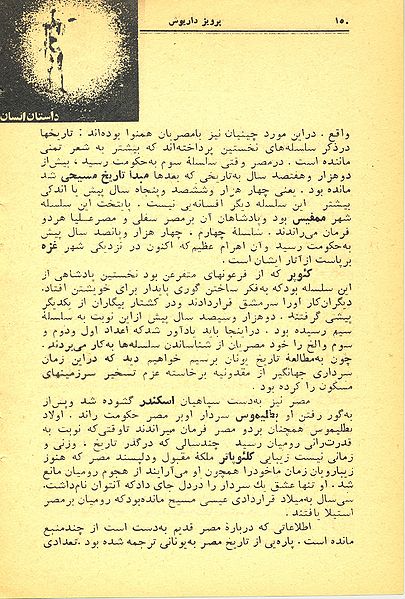 ۱۵۰
پرویز داریوش
داستان انسان
واقع . دراین مورد چینیان نیز بامصریان همنوا بوده‌اند : تاریخها
درذکر سلسله‌های نخستین پرداخته‌اند که بیشتر به شعر تمنی
ماننده است . درمصر وقتی سلسلهٔ سوم به‌حکومت رسید ، بیش‌از
دوهزار وهفتصد سال به‌تاریخی که بعدها مبدا تاریخ مسیحی شد
مانده بود . یعنی چهار هزار وششصد وپنجاه سال پیش یا اندکی
بیشتر این سلسله دیگر افسانه‌یی نیست . پایتخت این سلسله
شهر ممفیس بود وپادشاهان آن برمصر سفلی و مصرعلیا هردو
فرمان می‌راندند . سلسلهٔ چهارم . چهار هزار وپانصد سال پیش
به‌حکومت رسید وآن اهرام عظیم‌که اکنون در نزدیکی شهر غزه
برپاست ازآثار ایشان است .
کئوپر که از فرعونهای متفرعن بود نخستین پادشاهی از
این سلسله بودکه به‌فکر ساختن گوری پایدار برای خویشتن افتاد،
دیگران‌کار اورا سرمشق قراردادند ودر کشتار بیگاران از یکدیگر
پیشی گرفتند . دوهزار وسیصد سال پیش ازاین نوبت به سلسلهٔ
سیم رسیده بود . دراینجا باید یادآور شدکه اعداد اول ودوم و
سوم والخ را خود مصریان از شناساندن سلسله‌ها به‌کار می‌بردند .
چون به‌مطالعهٔ تاریخ یونان برسیم خواهیم دید که دراین زمان
سرداری جهانگیر از مقدونیه برخاسته عزم تسخیر سرزمینهای
مسکون را کرده بود .
مصر نیز به‌دست سپاهیان اسکندر گشوده شد وپس‌از
به‌گور رفتن او بطلیموس سردار اوبر مصر حکومت راند . اولاد
بطلیموس همچنان بردو مصر فرمان میراندند تاوقتی‌که نوبت به
قدرت‌رانی رومیان رسید چندسالی که درگذر تاریخ ، وزنی و
زمانی نیست زیبایی کلئوپاتر ملکهٔ مقبول ودلپسند مصر که هنوز
زیبارویان زمان ماخودرا همچون او می‌آرایند از هجوم رومیان مانع
شد . او تنها عشق یك سردار را دردل جای دادکه آنتوان نام‌داشت.
سی‌سال به‌میلاد قراردادی عیسی مسیح مانده‌بودکه رومیان برمصر
استیلا یافتند .
اطلاعاتی که دربارهٔ مصر قدیم به‌دست است از چندمنبع
مانده است . پاره‌یی از تاریخ مصر به‌یونانی ترجمه شده بود .تعدادی